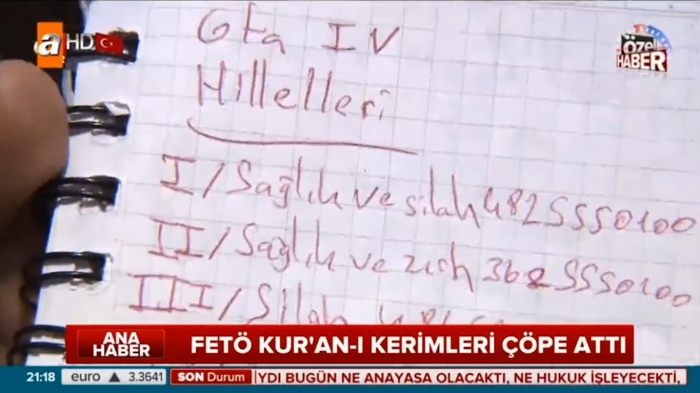 a HD
ÖZEL
HABER
Gta IV
Hillelleri
I/Sağlık ve silah 4825550100
II/Sağlık ve zırh 3625550100
III/Silah
ANA
HABER
FETÖ KUR'AN-I KERİMLERİ ÇÖPE ATTI
21:18 euro ▲ 3.3641 SON Durum YDI BUGÜN NE ANAYASA OLACAKTI, NE HUKUK İŞLEYECEKTİ,